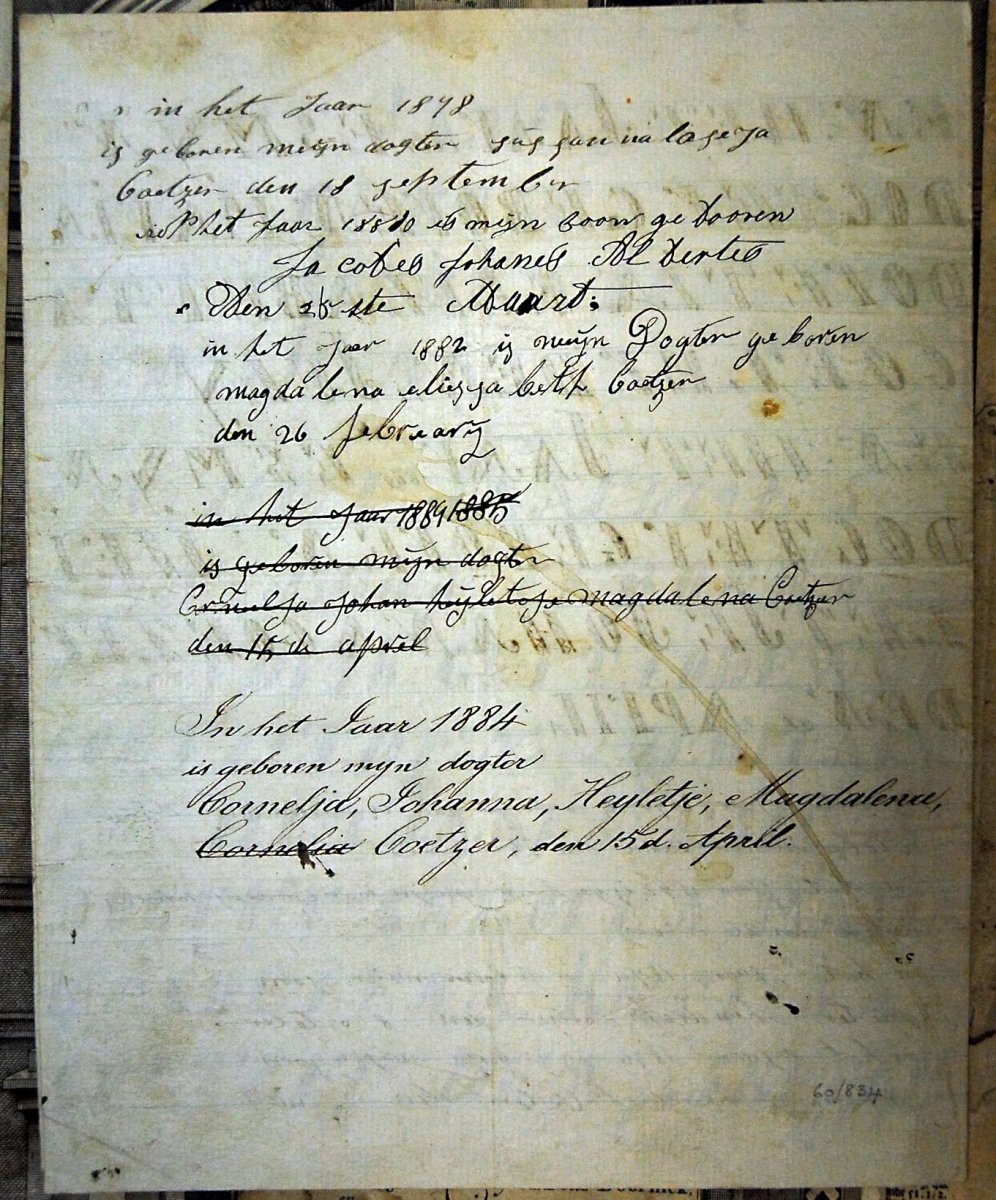 in het Jaar 1878
is geboren meijn dogter sussanna
Coetzer den 18 september
het Jaar 18810 is mijn soon ge booren
Ja cobes Johanes Al bertes
Den ste Maart:
in het Jaer 1882 is meijn Dogter ge boren
magda lena eliessa beth Coetzer
den 26 february
in het Jaar 1884 1885
is geboren mijn dogter
Johan heijletje magdalena Coetzer
den 15 de april
In het Jaar 1884
is geboren mijn dogter
Cornelja, Johanna, Heyletje, Magdalena,
Cornelia Coetzer, den 15 d. April.
60/834